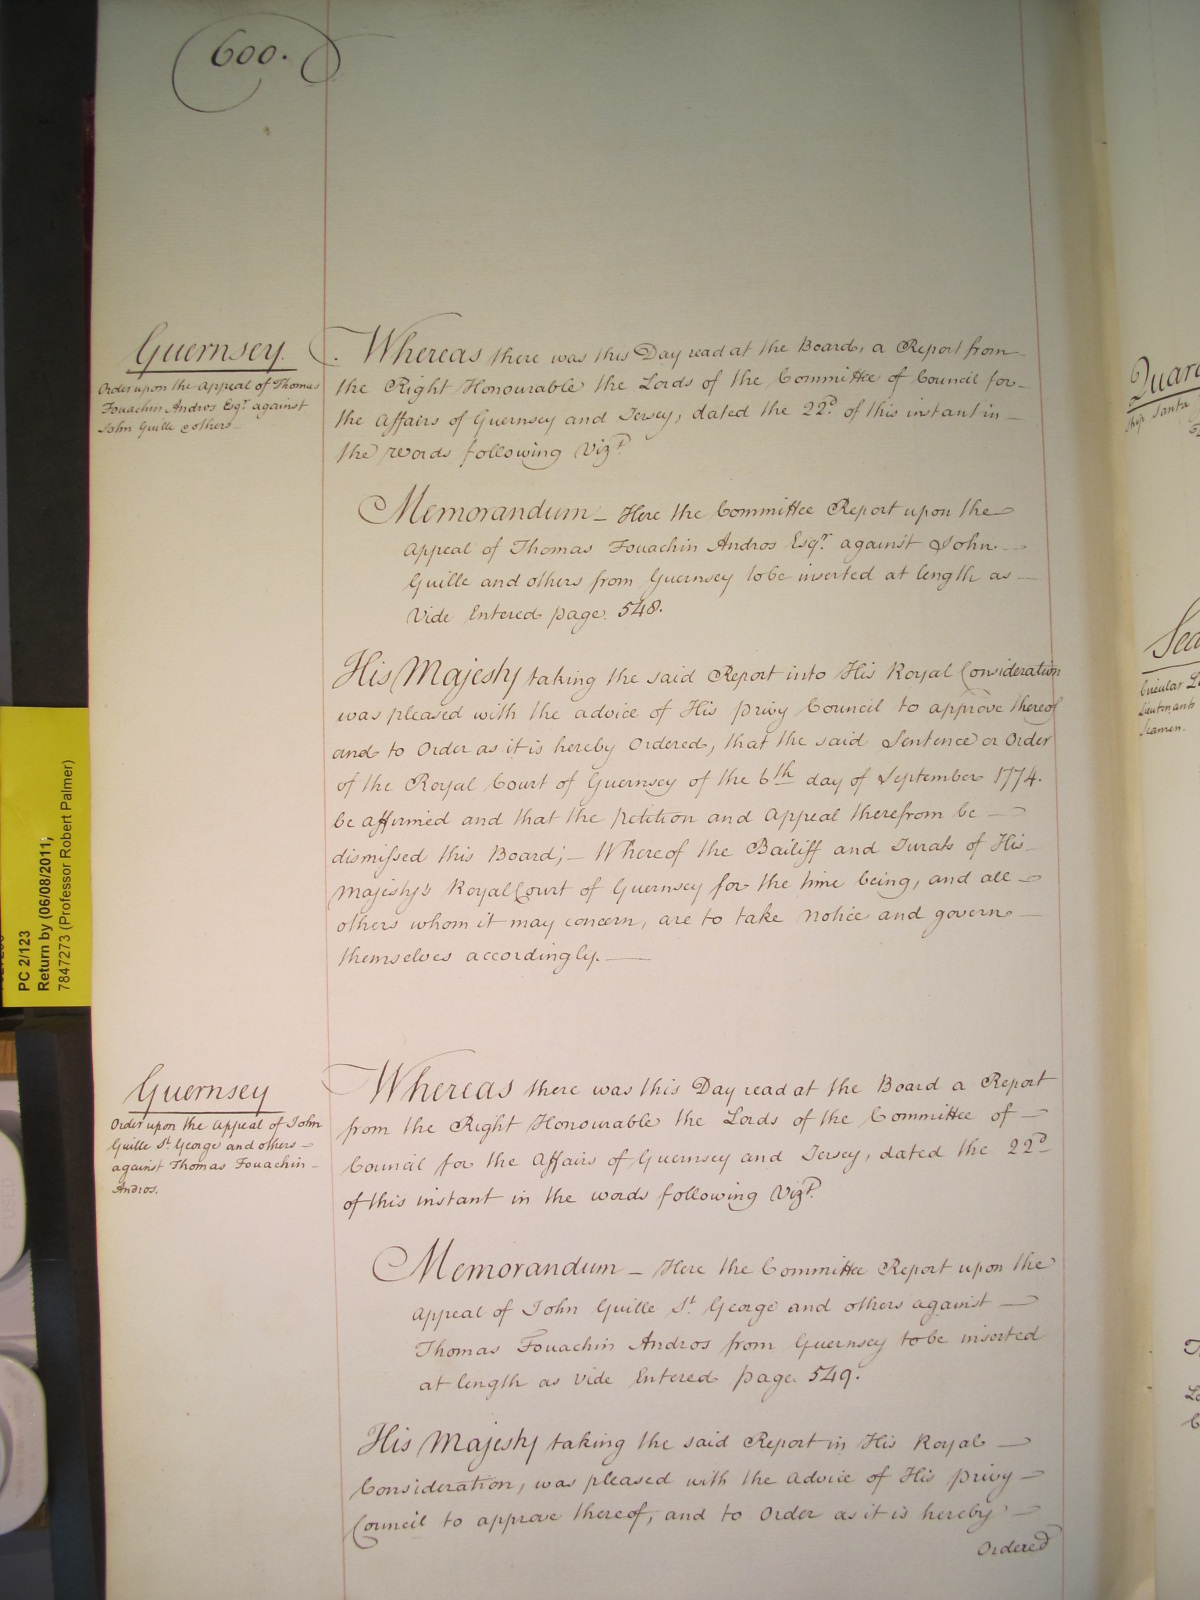 600.
Guernsey.
Order upon the Appeal of Thomas
Fouachin Andros Esqr. against
John Guille & others
Whereas there was this Day read at the Board, a Report from
the Right Honourable the Lords of the Committee of Council for
the Affairs of Guernsey and Jersey, dated the 22d. of this instant in
the words following Vizt.
Memorandum – Here the Committee Report upon the
Appeal of Thomas Fouachin Andros Esqr. against John
Guille and others from Guernsey to be inserted at length as
Vide Entered page 548.
His Majesty taking the said Report into His Royal Consideration
was pleased with the advice of His Privy Council to approve thereof
and to Order as it is hereby Ordered, that the said Sentence or Order
of the Royal Court of Guernsey of the 6th day of September 1774.
be affirmed and that the Petition and Appeal therefrom be
dismissed this Board; – Whereof the Bailiff and Jurats of His
Majesty's Royal Court of Guernsey for the time being, and all
others whom it may concern, are to take notice and govern
themselves accordingly.
Guernsey
Order upon the Appeal of John
Guille St. George and others
against Thomas Fouachin
Andros.
Whereas there was this Day read at the Board a Report
from the Right Honourable the Lords of the Committee of
Council for the Affairs of Guernsey and Jersey, dated the 22d
of this instant in the words following Vizt.
Memorandum – Here the Committee Report upon the
Appeal of John Guille St. George and others against
Thomas Fouachin Andros from Guernsey to be inserted
at length as vide Entered page 549.
His Majesty taking the said Report in His Royal
Consideration, was pleased with the Advice of His Privy
Council to approve thereof, and to Order as it is hereby
Ordered
PC 2/123
Return by (06/08/2011;
7847273 (Professor Robert Palmer)
Quar
Ship Santa
Sea
Circular Le
Lieutenants
Seamen.